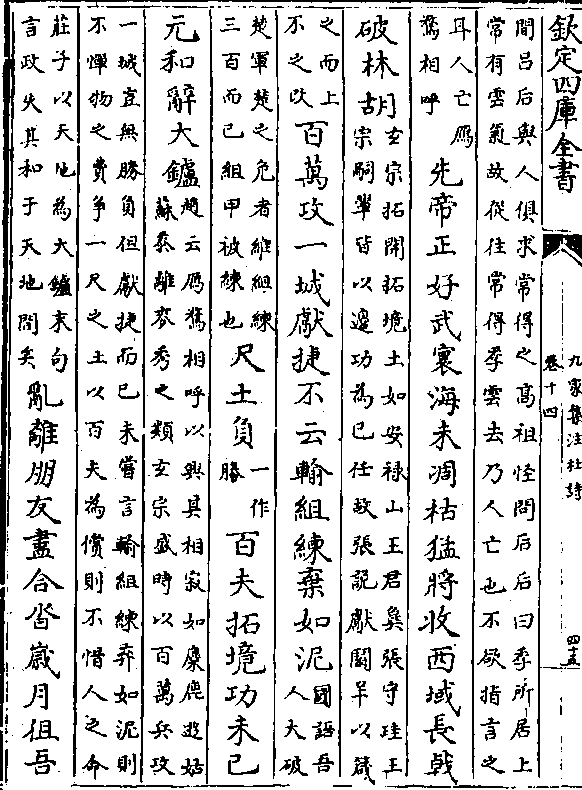 欽定四庫全書
九家集注杜詩
卷十四
四十五
間呂后與人俱求常得之高祖怪問后后曰季所居上
常有雲氣故從往常得季雲去乃人亡也不欲指言之
耳人亡鴈
鶩相呼
先帝正好武寰海未凋枯猛將收西域長戟
破林胡
玄宗拓開拓境土如安祿山王君㚟張守珪王
宗嗣輩皆以邊功為已任故張說獻鬬羊以箴
之而上
不之改
百萬攻一城獻捷不云輸組練棄如泥
國語吾
人大破
楚軍楚之危者維組練
三百而已組甲被練也
尺土負
一作
勝
百夫拓境功未已
元和辭大鑪
趙云鴈鶩相呼以興其相寂如麋鹿遊姑
蘇黍離麥秀之類玄宗盛時以百萬兵攻
一城豈無勝負但獻捷而已未嘗言輸組練弃如泥則
不憚物之費爭一尺之土以百夫為償則不惜人之命
莊子以天地為大鑪末句
言政失其和于天地間矣
亂離朋友盡合沓歲月徂吾